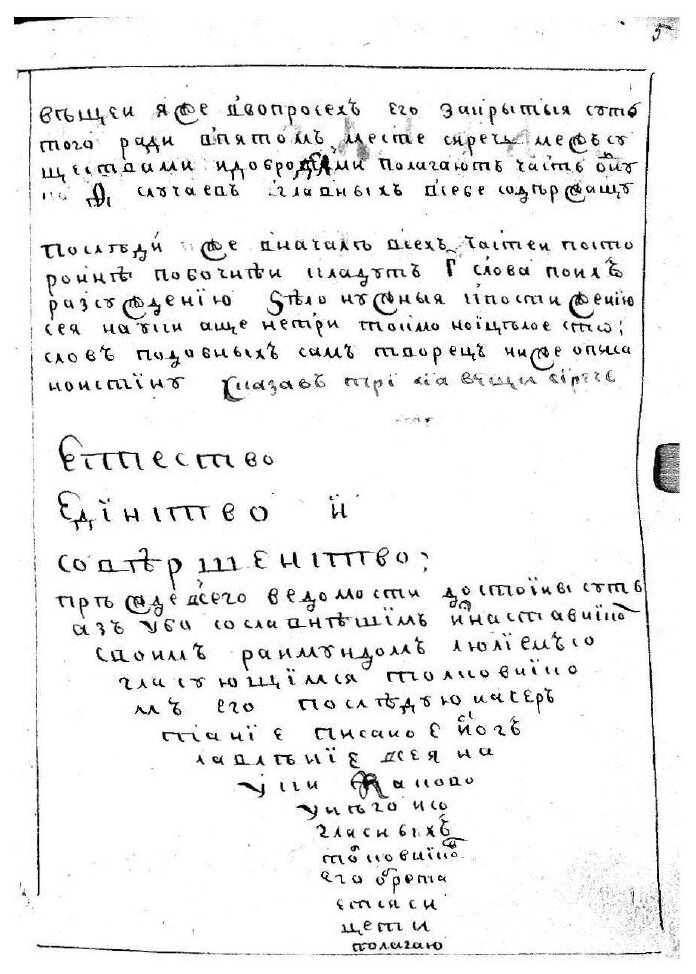 5
вѣщеи я же двопросехъ его закрытыя суть
того ради впятомъ месте сиречь межъсу
ществами идобродѣями полагаютъ часть ону
случаевъ главныхъ всебе содержащу
последи же вначалѣ всехъ частеи посто
роннѣ побочнѣи кладутъ г слова поихъ
разсуждению ѕѣло нужныя кпостижению
сея науки аще нетри токмо ноицѣлое сто;
словъ подобныхъ самъ творецъ ниже описа
ноистину сказавъ трї сїа вещи сїречь
Естество
Едїнство й
совѣршенство;
прѣжде всего ведомости достоины суть
азъ убо сославнѣшїмъ инаставнико
своимъ раимундомъ люлїемъ со
гласующїмся толковнико
мъ его последую касер
танїе писано е ї ог
лавлѣнїе всея на
уки каково
унего исо
гласныхъ
толковнико
его обрета
ется си
цети
полагаю